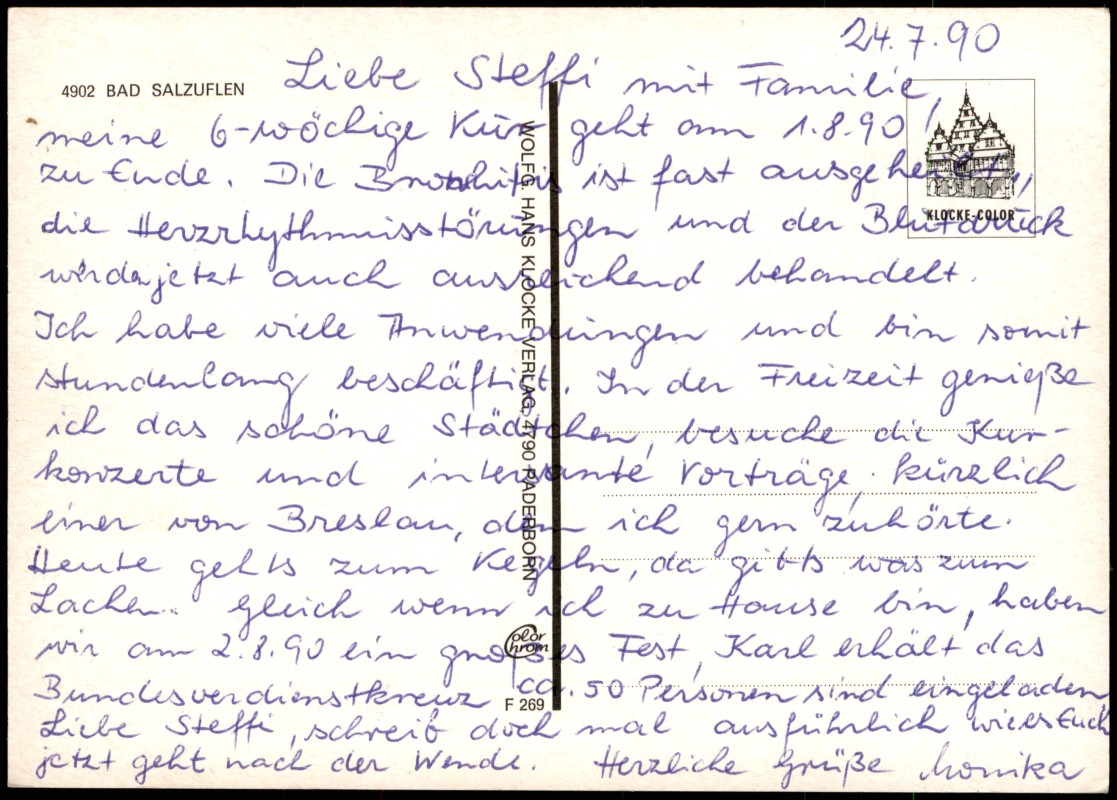 24.7.90
4902 BAD SALZUFLEN
Liebe Steffi mit Familie,
meine 6-wöchige Kur geht am 1.8.90
zu Ende. Die Bronchitis ist fast ausgeheilt,
die Herzrhythmusstörungen und der Blutdruck
wird jetzt auch ausreichend behandelt.
Ich habe viele Anwendungen und bin somit
stundenlang beschäftigt. In der Freizeit genieße
ich das schöne Städtchen, besuche die Kur-
konzerte und intersante Vorträge. Kürzlich
einer von Breslau, dem ich gern zuhörte.
Heute gehts zum Kegeln, da gibts was zum
Lachen. Gleich wenn ich zu Hause bin, haben
wir am 2.8.90 ein großes Fest, Karl erhält das
Bundesverdienstkreuz ca. 50 Personen sind eingeladen
Liebe Steffi, schreib doch mal ausführlich wie es Euch
jetzt geht nach der Wende. Herzliche Grüße Monika
WOLFG. HANS KLOCKE VERLAG, 4790 PADERBORN
Color
Chrom
F 269
KLOCKE-COLOR